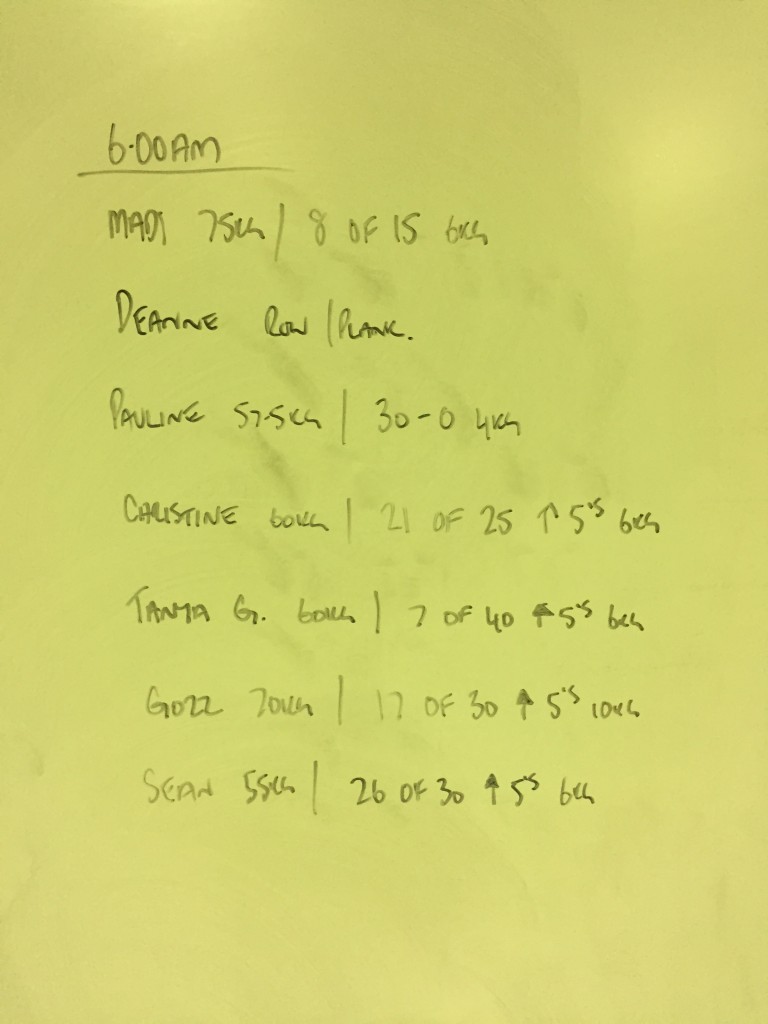 6.00AM
MADI 75KG | 8 OF 15 6KG
DEANNE ROW | PLANK.
PAULINE 57.5KG | 30-0 4KG
CHRISTINE 60KG | 21 OF 25 ↑ 5'S 6KG
TANYA G. 60KG | 7 OF 40 ↑ 5'S 6KG
GOZZ 70KG | 17 OF 30 ↑ 5'S 10KG
SEAN 55KG | 26 OF 30 ↑ 5'S 6KG